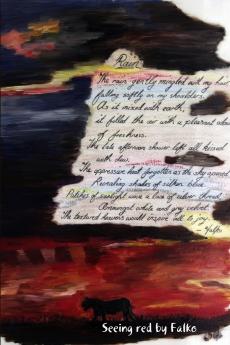 Rain
The rain gently mingled with my hair
falling softly on my shoulders.
As it mixed with earth,
it filled the air with a pleasant odour
of freshness.
The late afternoon shower left all kissed
with dew.
The oppressive heat forgotten as the sky opened
Revealing shades of silken blue.
Patches of sunlight wove a lace of silver thread
Amongst white and grey velvet.
The textured heavens would inspire all to joy.
- Falko
Seeing red by Falko